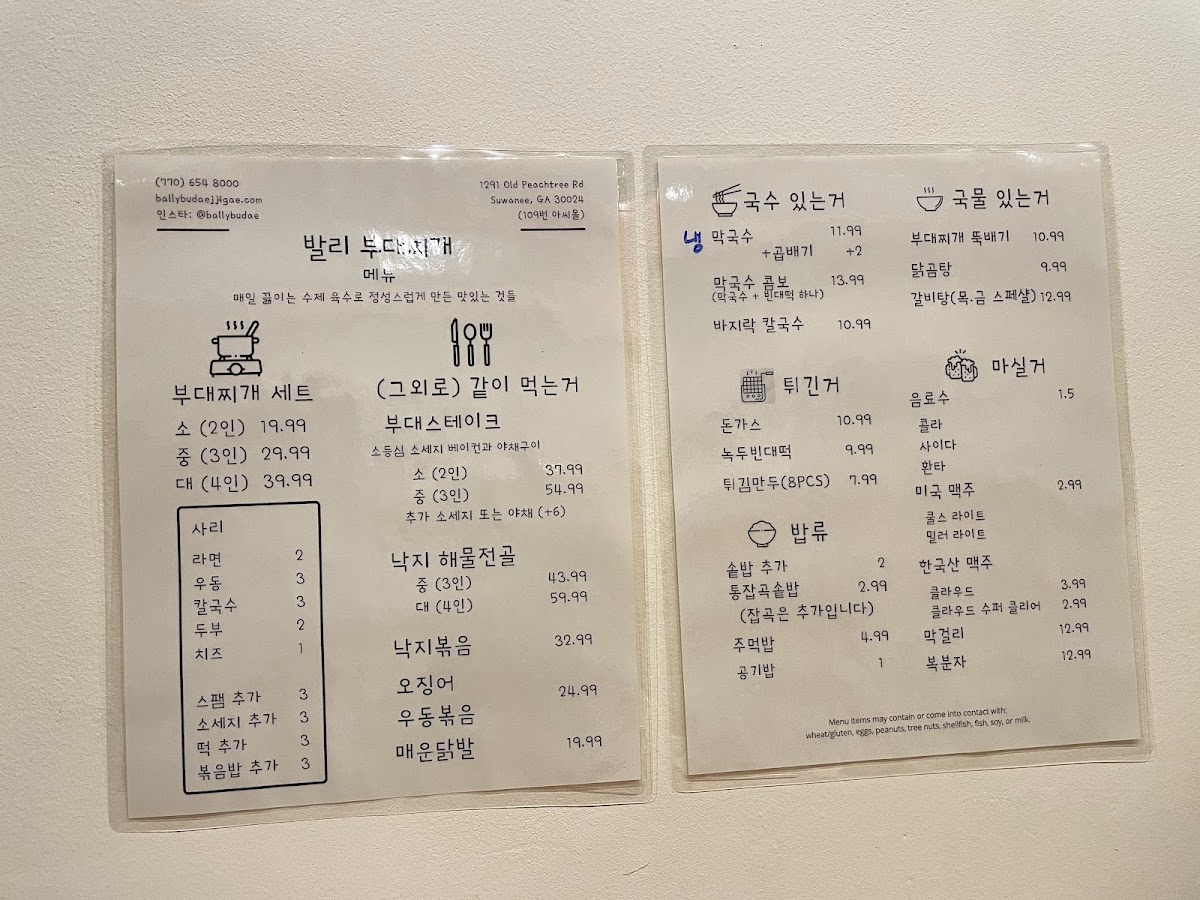 (770) 654 8000
ballybudaejjigae.com
인스타: @ballybudae
1291 Old Peachtree Rd
Suwanee, GA 30024
(109번 아씨몰)
발리 부대찌개
메뉴
매일 끓이는 수제 육수로 정성스럽게 만든 맛있는 것들
부대찌개 세트
소 (2인) 19.99
중 (3인) 29.99
대 (4인) 39.99
사리
라면 2
우동 3
칼국수 3
두부 2
치즈 1
스팸 추가 3
소세지 추가 3
떡 추가 3
볶음밥 추가 3
(그외로) 같이 먹는거
부대스테이크
소등심 소세지 베이컨과 야채구이
소 (2인) 37.99
중 (3인) 54.99
추가 소세지 또는 야채 (+6)
낙지 해물전골
중 (3인) 43.99
대 (4인) 59.99
낙지볶음 32.99
오징어 24.99
우동볶음
매운닭발 19.99
국수 있는거
냉 막국수 11.99
+곱배기 +2
막국수 콤보 13.99
(막국수 + 빈대떡 하나)
바지락 칼국수 10.99
튀긴거
돈가스 10.99
녹두빈대떡 9.99
튀김만두(8PCS) 7.99
밥류
솥밥 추가 2
통잡곡솥밥 2.99
(잡곡은 추가입니다)
주먹밥 4.99
공기밥 1
국물 있는거
부대찌개 뚝배기 10.99
닭곰탕 9.99
갈비탕(목.금 스페샬) 12.99
마실거
음료수 1.5
콜라
사이다
환타
미국 맥주 2.99
쿨스 라이트
밀러 라이트
한국산 맥주
클라우드 3.99
클라우드 수퍼 클리어 2.99
막걸리 12.99
복분자 12.99
Menu items may contain or come into contact with:
wheat/gluten, eggs, peanuts, tree nuts, shellfish, fish, soy, or milk.